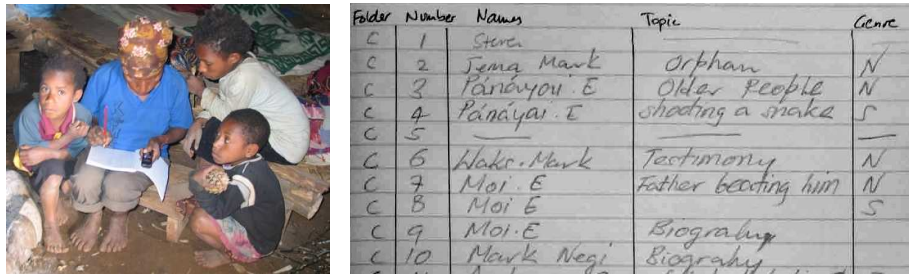 Folder Number Names Topic Genre
C 1 Steven
C 2 Jema Mark Orphan N
C 3 Pánáyoui.E Older People N
C 4 Pánáyai.E shooting a snake S
C 5
C 6 Waks.Mark Testimony N
C 7 Moi.E Father beating him N
C 8 Moi E S
C 9 Moi.E Biograhy
C 10 Mark Negi Biograhy